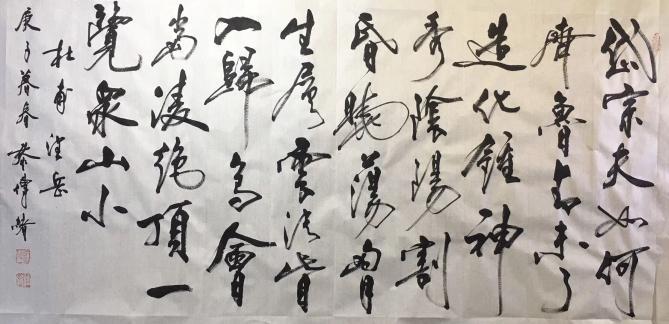 岱宗夫如何
齊魯青未了
造化鍾神
秀陰陽割
昏曉蕩胷
生層雲決眥
入歸鳥會
當凌絕頂一
覽衆山小
杜甫望岳
庚子暮春